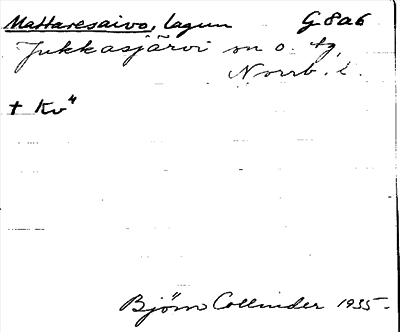 Mattaresaivo, lagun G 8 a 6
Jukkasjärvi sn o. tg,
Norrb. l.
+ Kv"
Björn Collinder 1935.